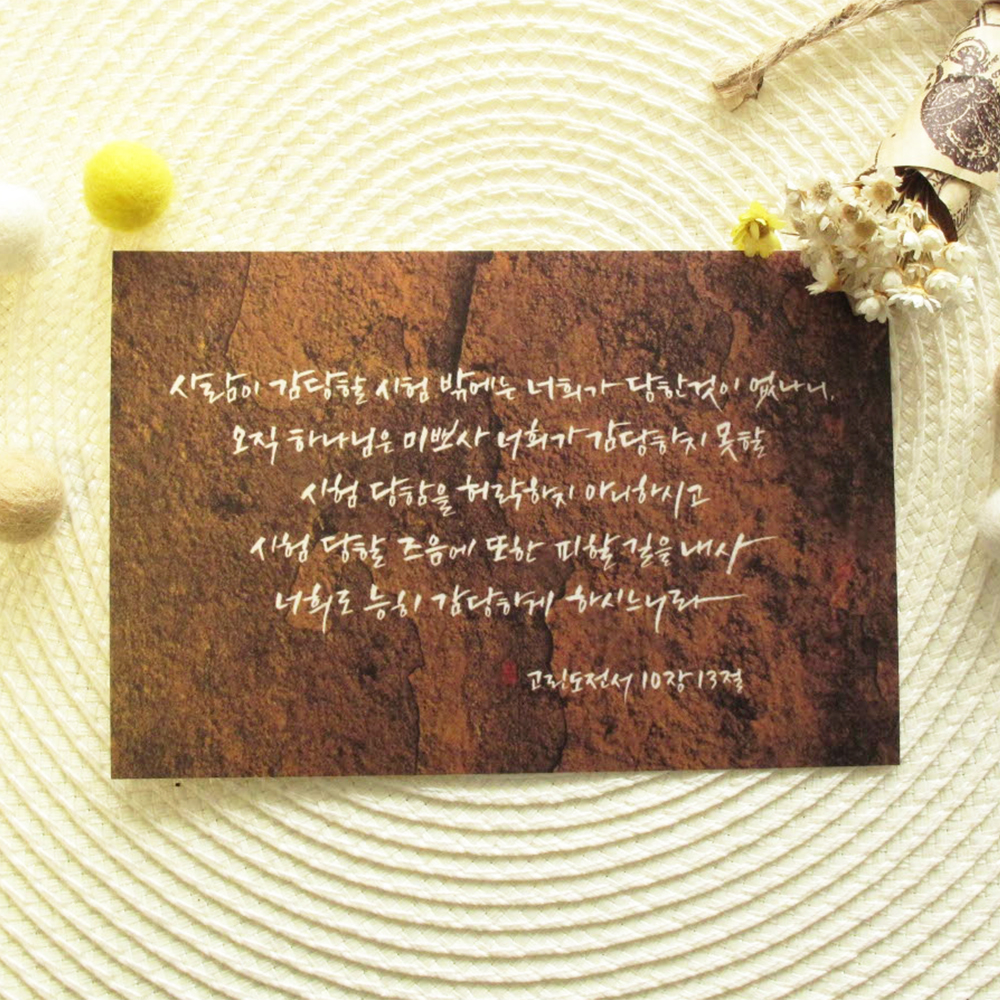 사람이 감당할 시험 밖에는 너희가 당한것이 없나니,
오직 하나님은 미쁘사 너희가 감당하지 못할
시험 당함을 허락하지 아니하시고
시험 당할 즈음에 또한 피할 길을 내사
너희로 능히 감당하게 하시느니라
고린도전서 10장 13절